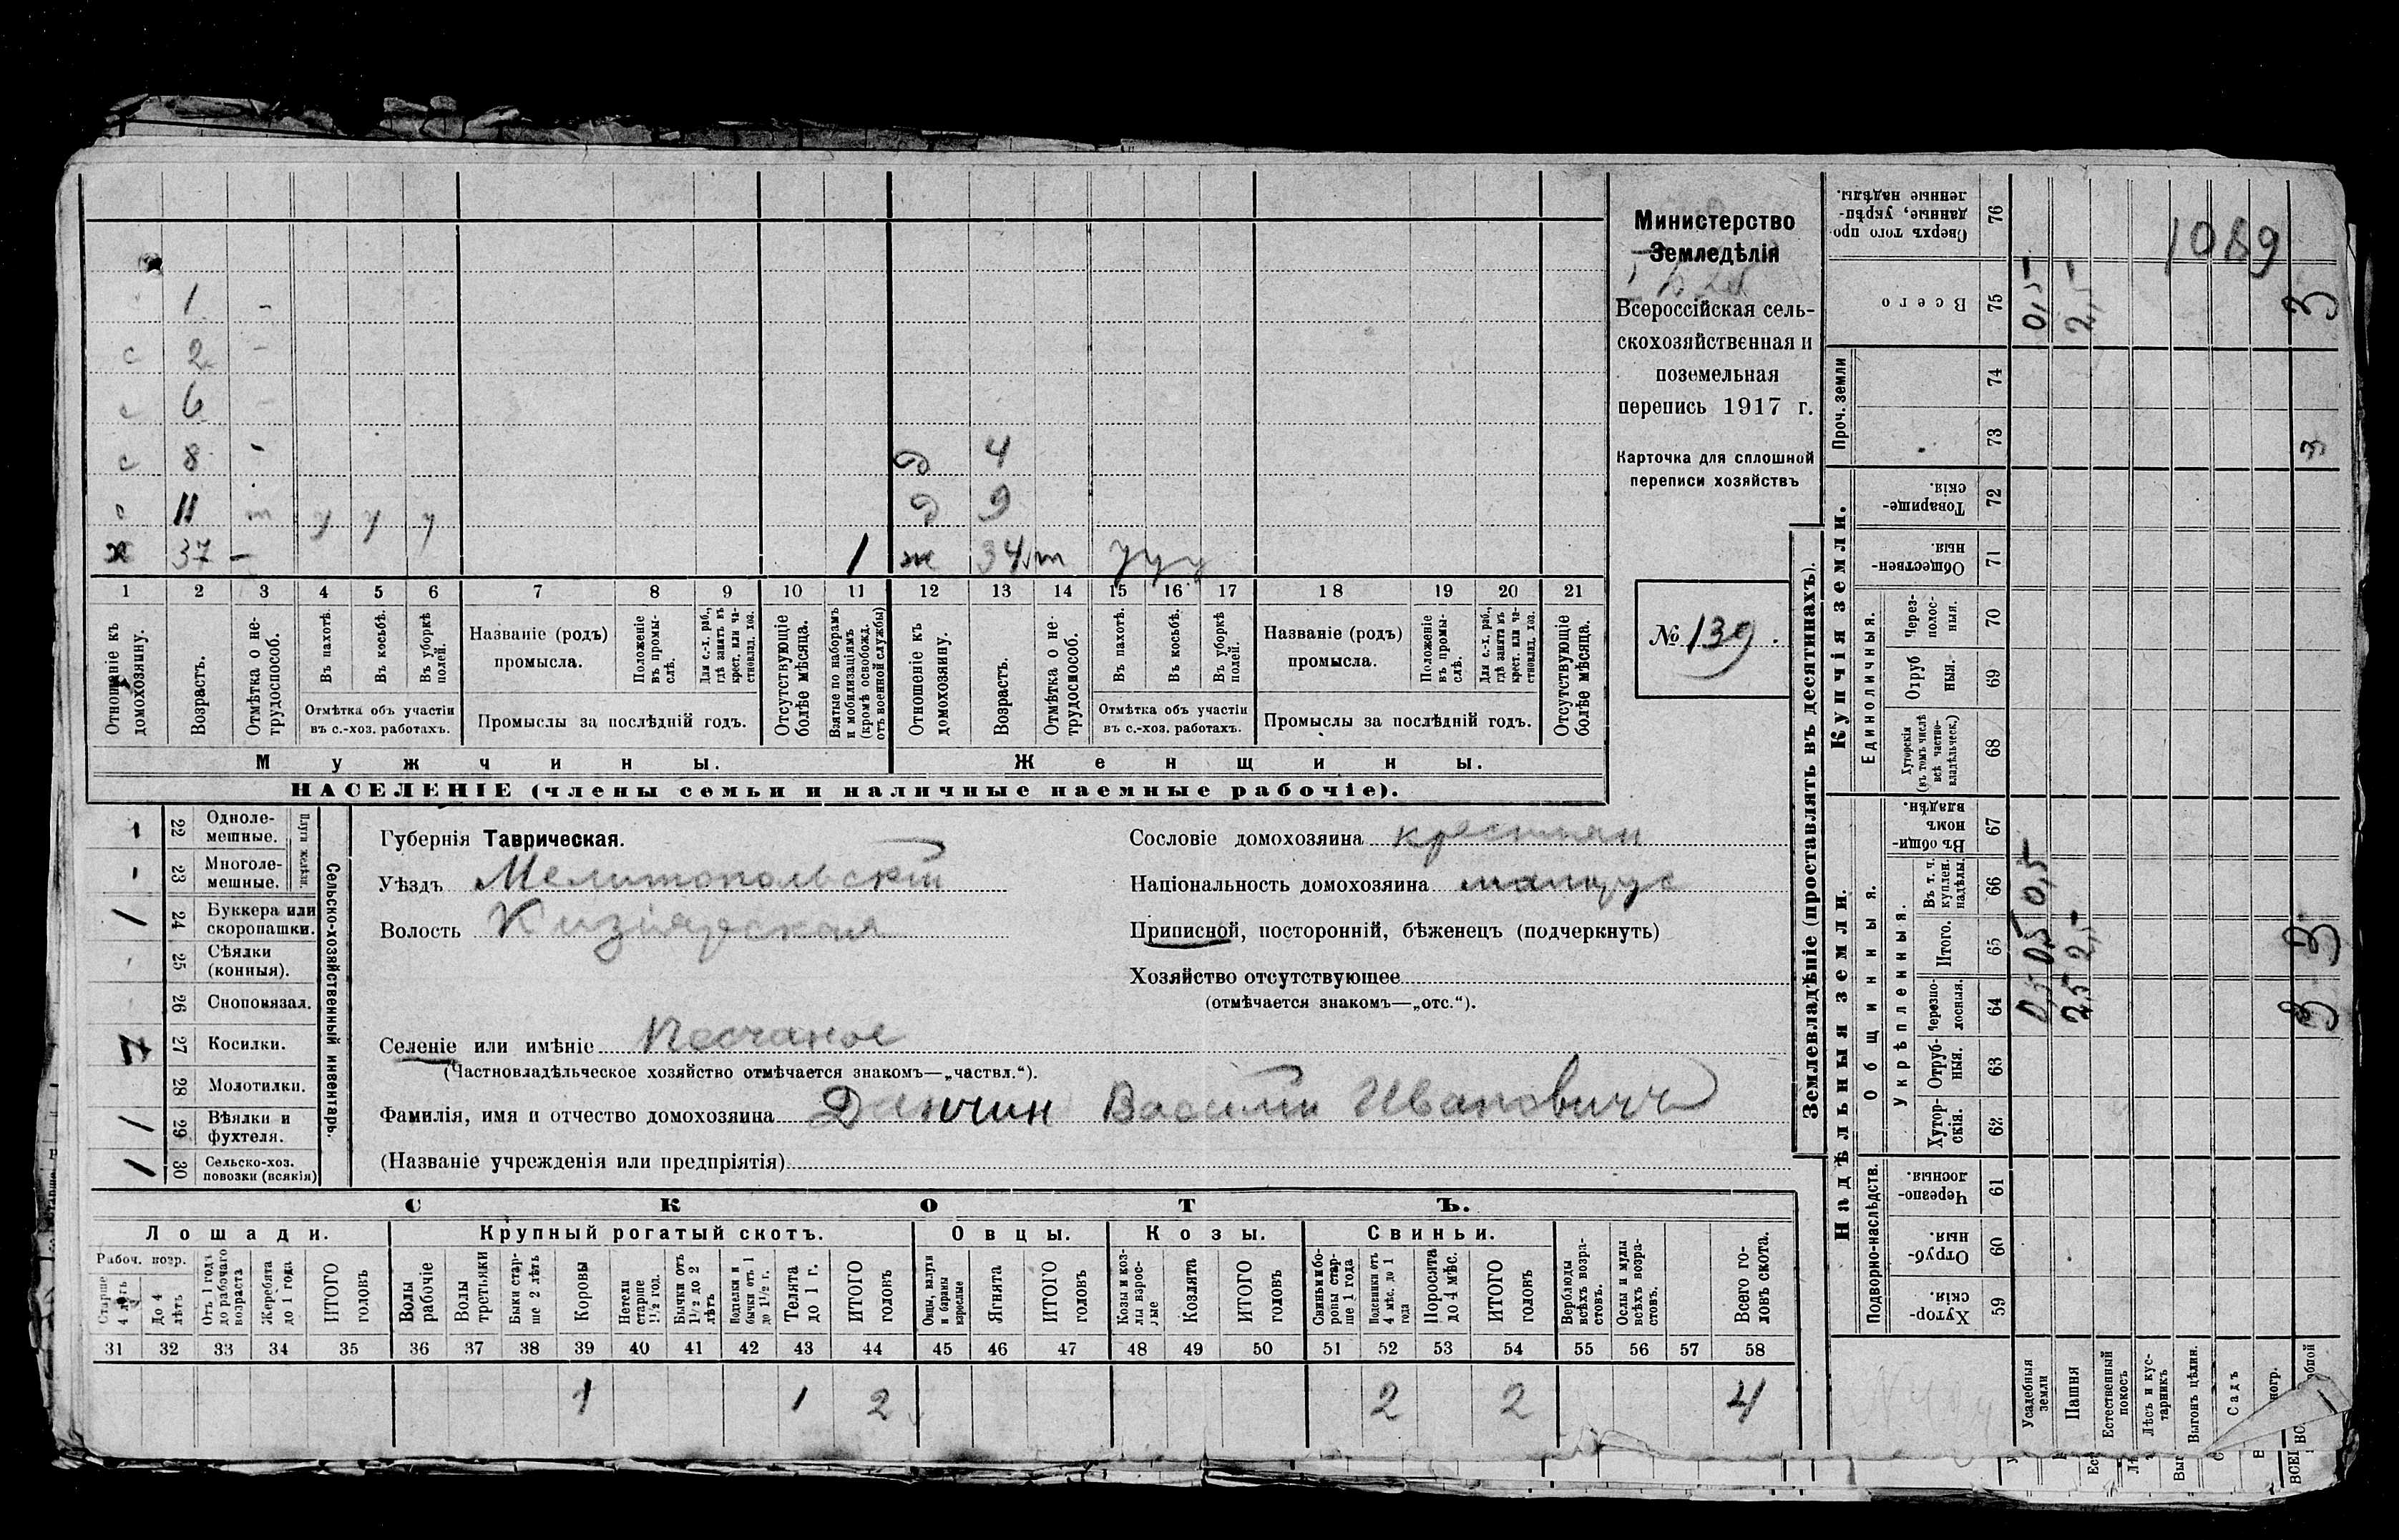 1 -
с 2 -
с 6 -
с 8 - д 4
с 11 т у у у д 9
х 37 - 1 ж 34 т у у у
1 2 3 4 5 6 7 8 9 10 11 12 13 14 15 16 17 18 19 20 21
Отношеніе къ домохозяину.
Возрастъ.
Отмѣтка о нетрудоспособ.
Въ пахотѣ.
Въ косьбѣ.
Въ уборкѣ полей.
Отмѣтка объ участіи
въ с.-хоз. работахъ.
Названіе (родъ)
промысла.
Положеніе въ промыслѣ.
Для с.-х. раб., гдѣ занятъ въ крест. или частновлад. хоз.
Промыслы за послѣдній годъ.
Отсутствующіе болѣе мѣсяца.
Взятые по наборамъ и мобилизаціямъ (кромѣ освобожд. отъ военной службы)
Отношеніе къ домохозяину.
Возрастъ.
Отмѣтка о нетрудоспособ.
Въ пахотѣ.
Въ косьбѣ.
Въ уборкѣ полей.
Отмѣтка объ участіи
въ с.-хоз. работахъ.
Названіе (родъ)
промысла.
Положеніе въ промыслѣ.
Для с.-х. раб., гдѣ занята въ крест. или частновлад. хоз.
Промыслы за послѣдній годъ.
Отсутствующіе болѣе мѣсяца.
Мужчины.
Женщины.
НАСЕЛЕНІЕ (члены семьи и наличные наемные рабочіе).
Министерство
Земледѣлія
Всероссійская сель-
скохозяйственная и
поземельная
перепись 1917 г.
Карточка для сплошной
переписи хозяйствъ
№ 139.
- 22 Одноле-
мешные.
- 23 Многоле-
мешные.
Плуги желѣзн.
1 24 Буккера или
скоропашки.
25 Сѣялки
(конныя).
26 Сноповязал.
27 Косилки.
28 Молотилки.
1 29 Вѣялки и
фухтеля.
1 30 Сельско-хоз.
повозки (всякія)
Сельско-хозяйственный инвентарь.
Губернія Таврическая.
Уѣздъ Мелитопольскій
Волость Кизіярская
Сословіе домохозяина крестьян
Національность домохозяина малорус
Приписной, посторонній, бѣженецъ (подчеркнуть)
Хозяйство отсутствующее
(отмѣчается знакомъ—„отс.“).
Селеніе или имѣніе Песчаное
(Частновладѣльческое хозяйство отмѣчается знакомъ—„частвл.“).
Фамилія, имя и отчество домохозяина Данчин Василій Ивановичъ
(Названіе учрежденія или предпріятія)
СКОТЪ.
Лошади. Крупный рогатый скотъ. Овцы. Козы. Свиньи.
Рабоч. возр.
Старше 4 лѣтъ
До 4 лѣтъ
Отъ 1 года до рабочаго возраста
Жеребята до 1 года
ИТОГО головъ
Волы рабочіе
Волы третьяки
Быки старше 2 лѣтъ
Коровы
Нетели старше 1½ год.
Бычки отъ 1½ до 2 лѣтъ
Подтелки и бычки отъ 1 до 1½ г.
Телята до 1 г.
ИТОГО головъ
Овцы, валухи и бараны взрослые
Ягнята
ИТОГО головъ
Козы и козлы взрослые
Козлята
ИТОГО головъ
Свиньи и боровы старше 1 года
Подсвинки отъ 4 мѣс. до 1 года
Поросята до 4 мѣс.
ИТОГО головъ
Верблюды всѣхъ возрастовъ.
Ослы и мулы всѣхъ возрастовъ.
Всего головъ скота.
31 32 33 34 35 36 37 38 39 40 41 42 43 44 45 46 47 48 49 50 51 52 53 54 55 56 57 58
1 1 2 2 2 4
Землевладѣніе (проставлять въ десятинахъ).
Надѣльныя земли.
Купчія земли.
Проч. земли
Подворно-наслѣдств.
Общинныя.
Укрѣпленныя.
Единоличныя.
Хутор-
скія. 59
Отруб-
ныя. 60
Черезпо-
лосныя. 61
Хутор-
скія. 62
Отруб-
ныя. 63
Черезпо-
лосныя. 64
Итого. 65
Въ т. ч. куплен. надѣлы. 66
Въ общин-
номъ
владѣн. 67
Хуторскія (въ томъ числѣ всѣ частно-владѣльческ.) 68
Отруб
ныя. 69
Через-
полос-
ныя. 70
Обществен-
ныя. 71
Товарище-
скія. 72
73
74
Всего 75
Сверхъ того про-
данные, укрѣп-
ленные надѣлы. 76
Усадебныя земли 0,5 0,5 0,5 0,5
Пашня 2,5 2,5 2,5
Естественный покосъ
Лѣсъ и кустарникъ
Выгонъ цѣлин.
Садъ
3 3 3 3
1089